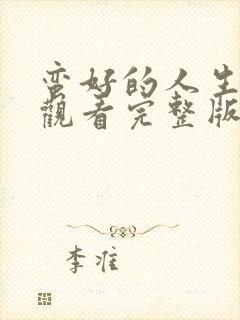 蛮好的人生
觀看完整版
李准